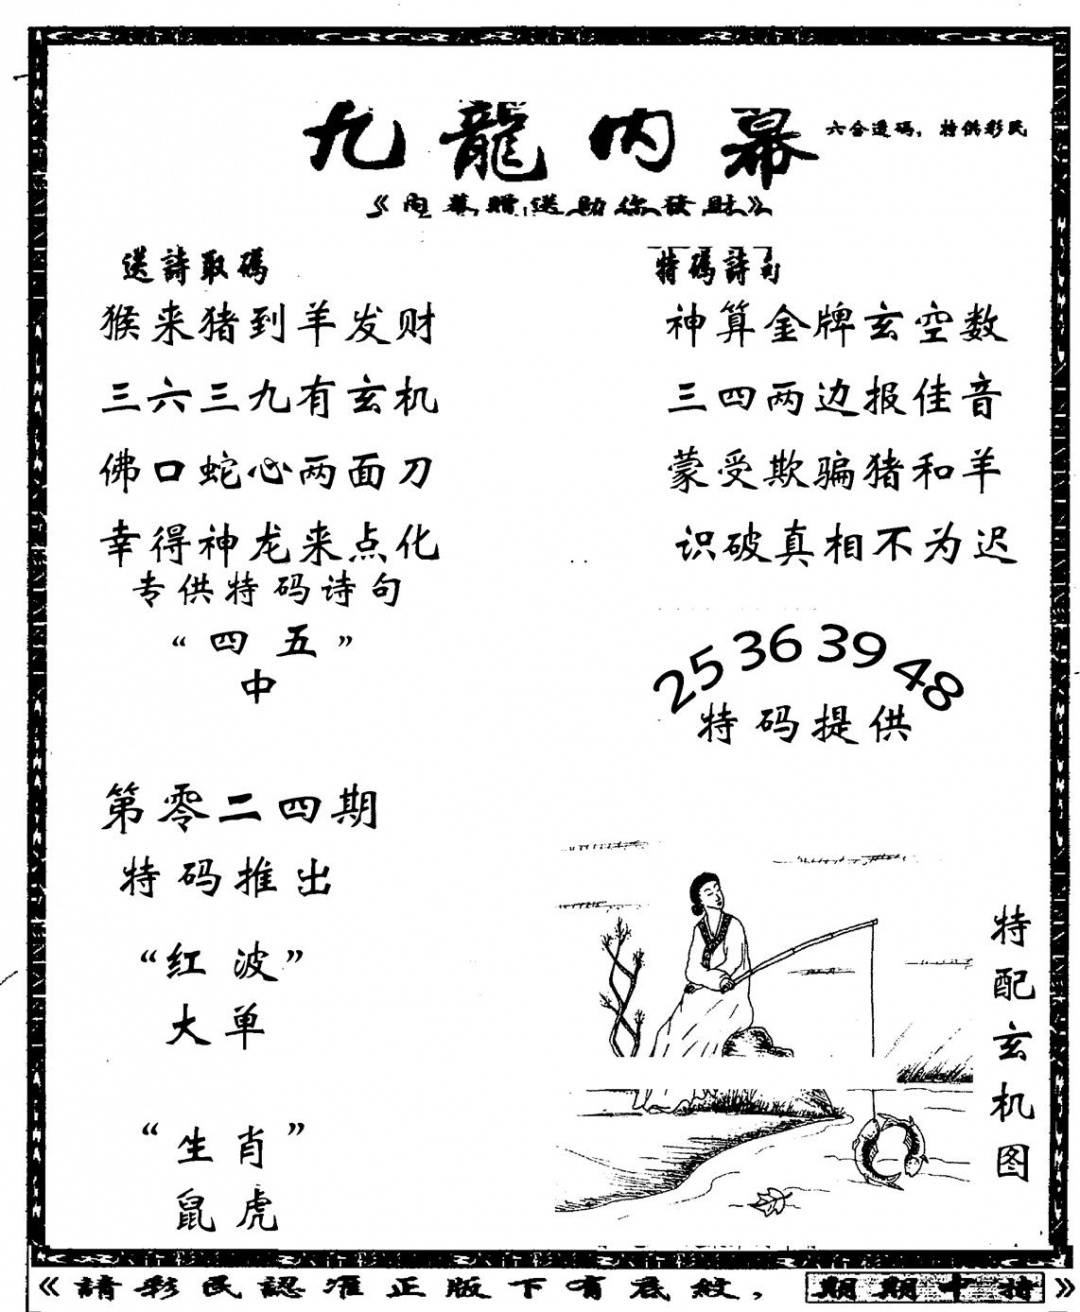 九龍内幕
六合透码，特供彩民
《内幕赠送助你發财》
送詩取碼
猴来猪到羊发财
三六三九有玄机
佛口蛇心两面刀
幸得神龙来点化
专供特码诗句
“四五”
中
第零二四期
特码推出
“红波”
大单
“生肖”
鼠虎
特碼詩句
神算金牌玄空数
三四两边报佳音
蒙受欺骗猪和羊
识破真相不为迟
25 36 39 48
特码提供
特配玄机图
《請彩民認准正版下有底紋，期期中特》